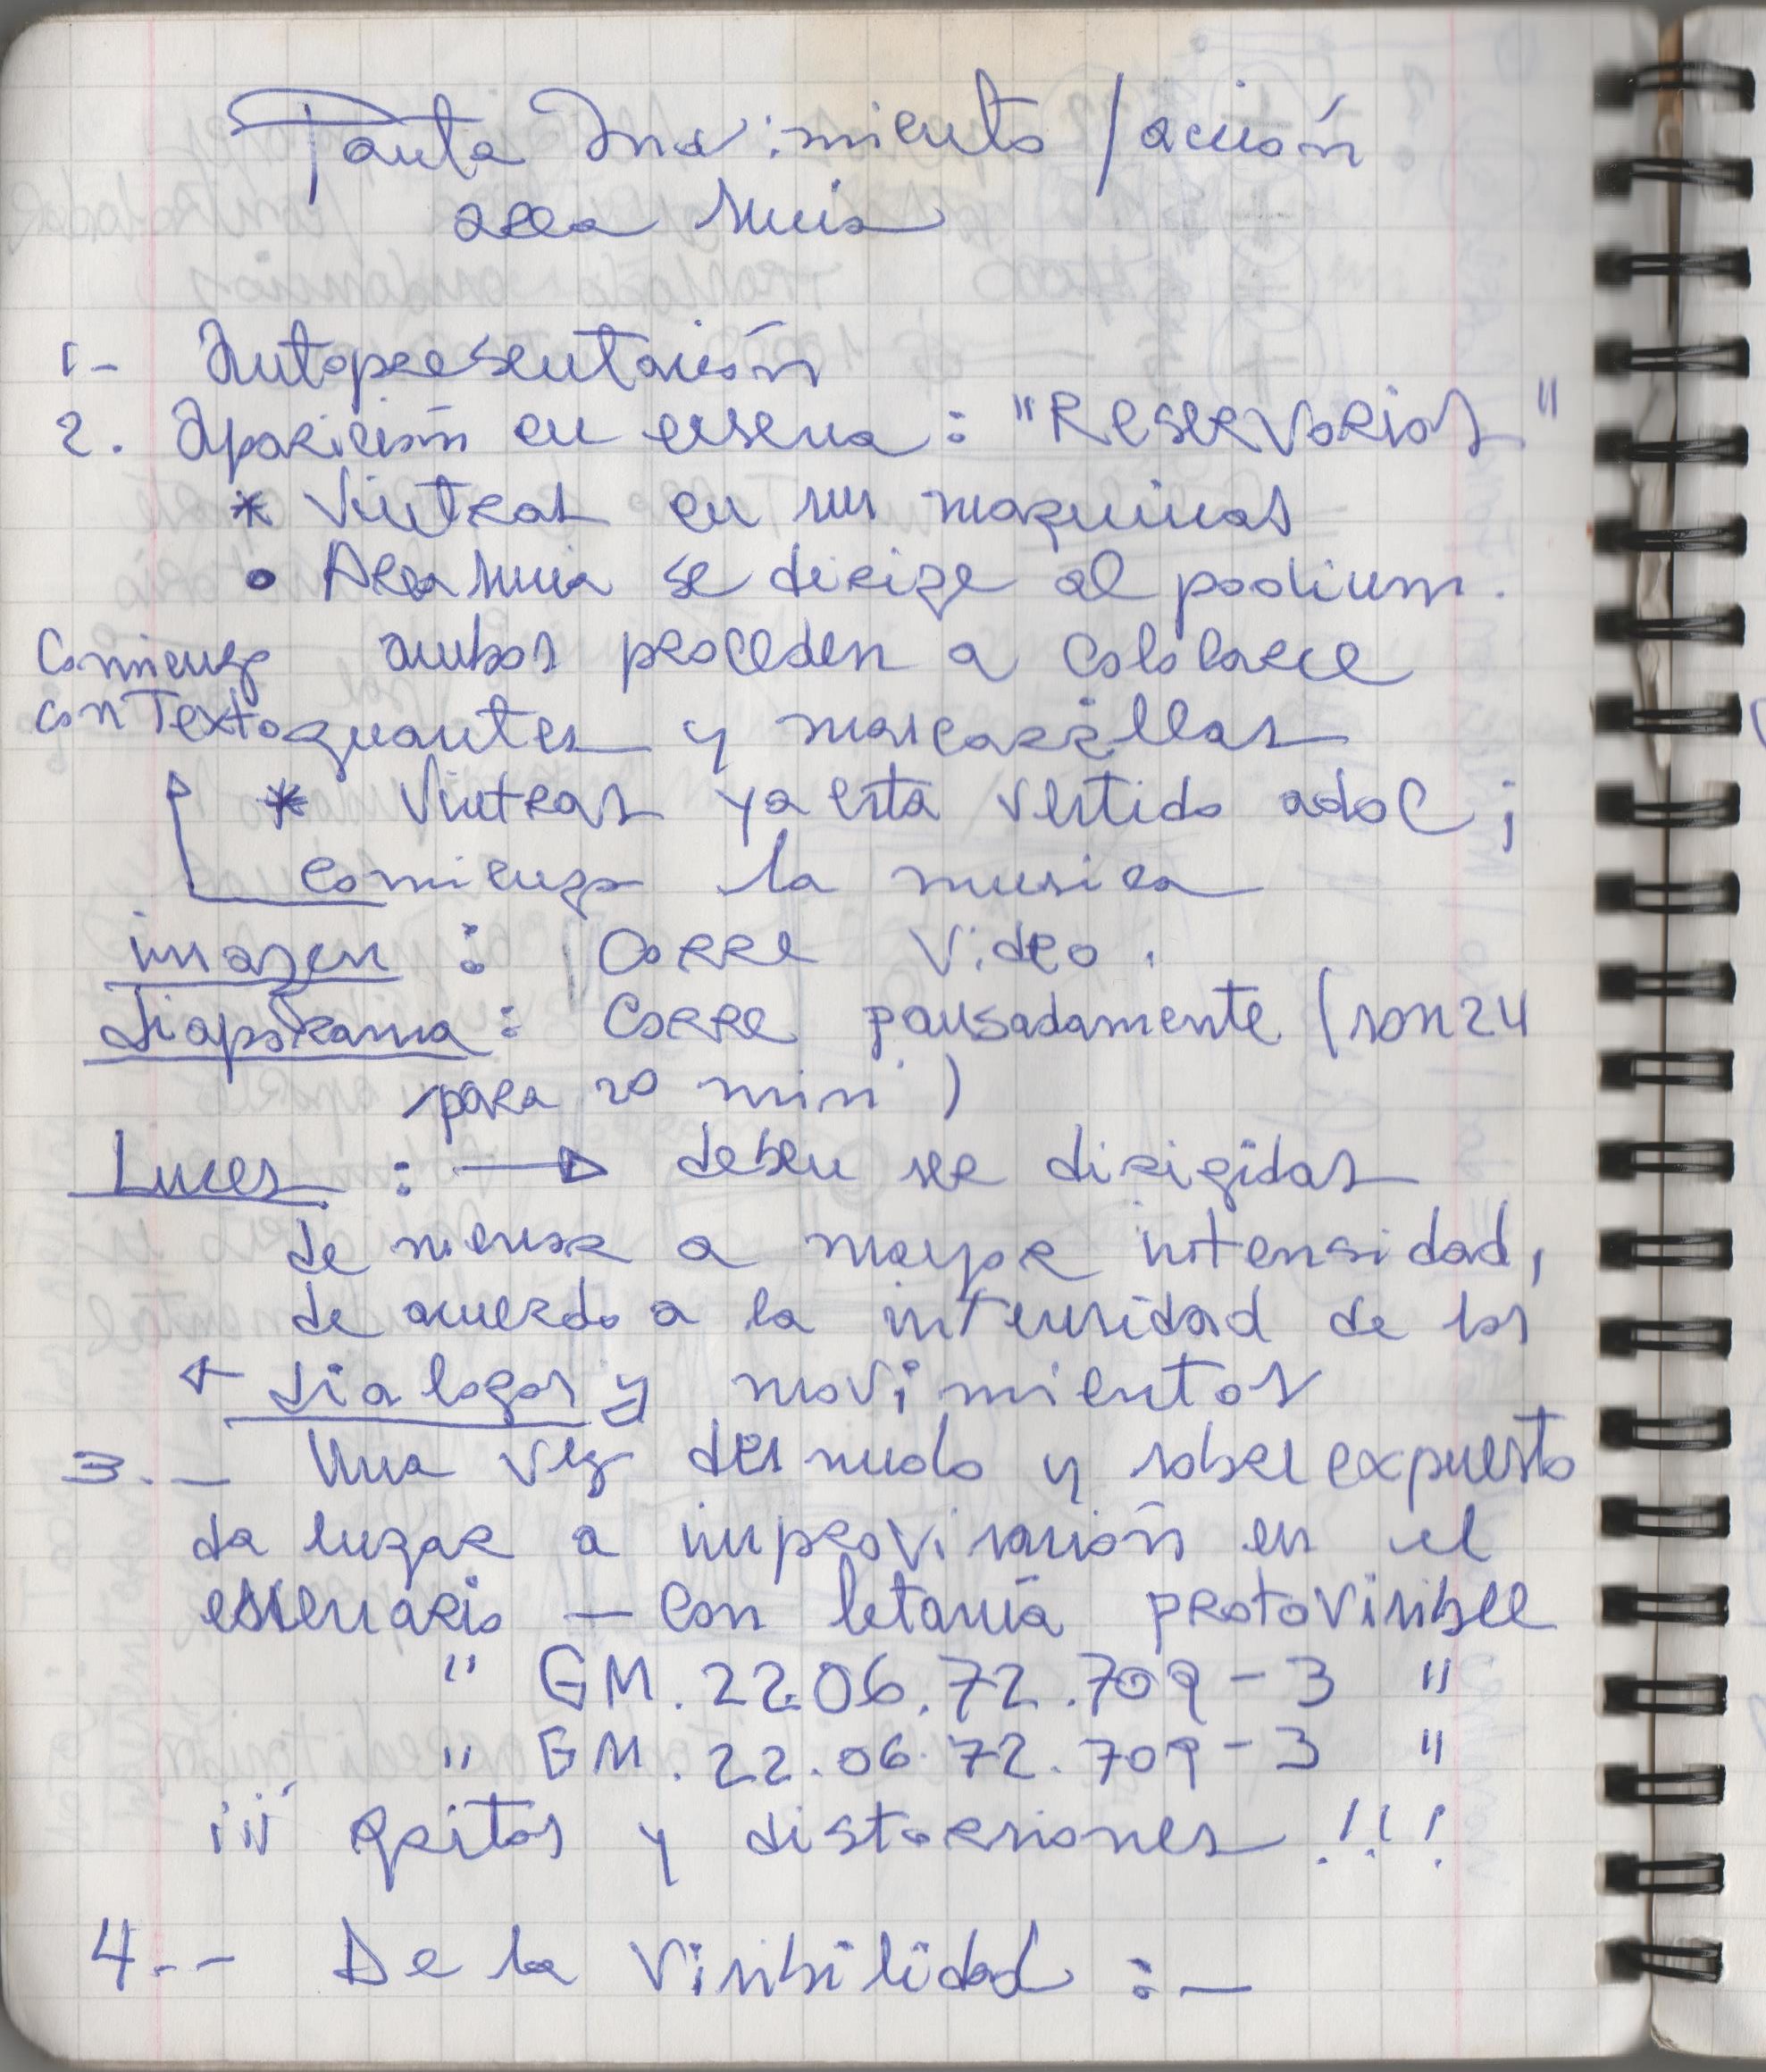 Pauta Movimiento / acción
1- Autopresentación
2. Aparición en escena : "Reservorios"
* Vintras en sus maquinas
• se dirige al podium.
ambos proceden a colocarce
Comienza
con Texto
guantes y mascarillas
* Vintras ya esta vestido adoc ;
comienza la musica
imagen : Corre Video .
Diaporama : Corre pausadamente (son 24
para 20 min )
Luces : → deben ser dirigidas
de menor a mayor intensidad,
de acuerdo a la intensidad de los
← dialogos y movimientos
3.- Una vez desnudo y sobreexpuesto
da lugar a improvisación en el
escenario — con letanía protovisible
" GM.22.06.72.709-3 "
" GM.22.06.72.709-3 "
¡¡¡ gritos y distorsiones !!!
4.- De la Visibilidad :-